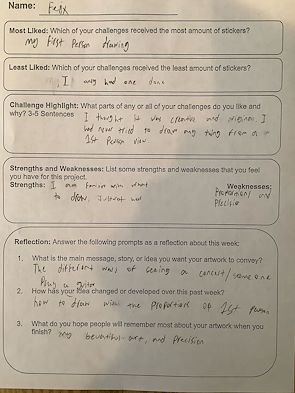 Name: Felix
Most Liked: Which of your challenges received the most amount of stickers?
my first Person drawing
Least Liked: Which of your challenges received the least amount of stickers?
I only had one done
Challenge Highlight: What parts of any or all of your challenges do you like and
why? 3-5 Sentences
I thought it was creative and original. I
had never tried to draw any thing from a
1st Person view.
Strengths and Weaknesses: List some strengths and weaknesses that you feel
you have for this project.
Strengths: I am familiar with what
Weaknesses:
to draw,
Proportions and
Precision
Reflection: Answer the following prompts as a reflection about this week:
1. What is the main message, story, or idea you want your artwork to convey?
The different ways of seeing a concert/some one
Play a guitar
2. How has your idea changed or developed over this past week?
how to draw with the proportion of 1st person
3. What do you hope people will remember most about your artwork when you
finish? my beautiful art, and Precision